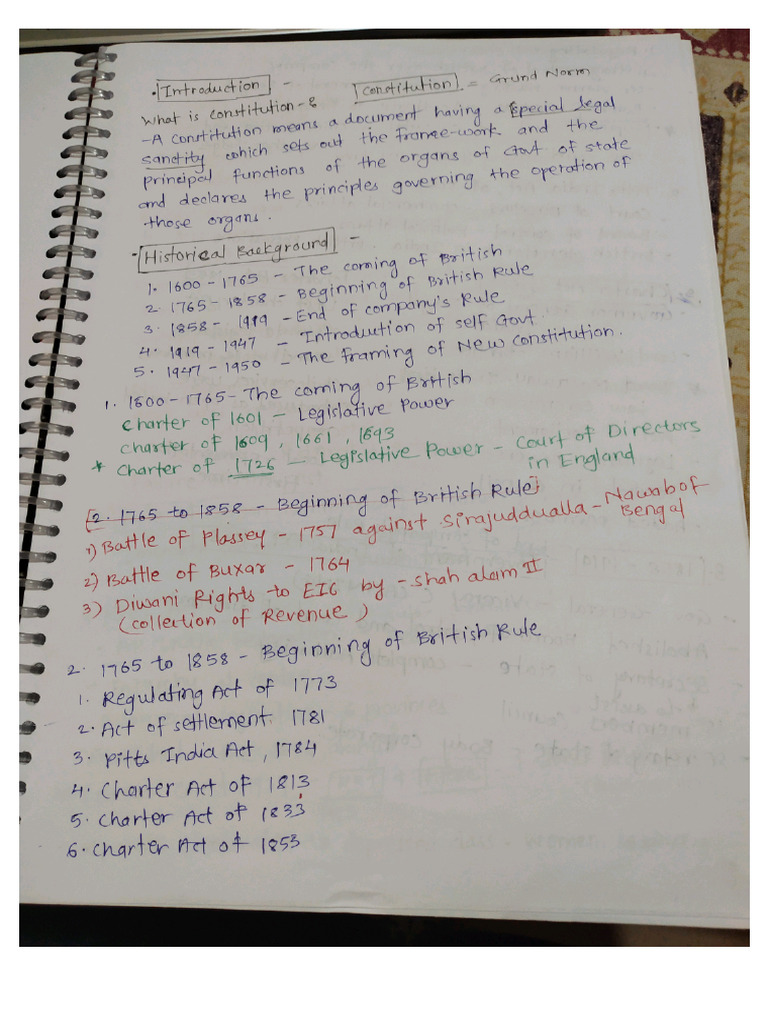 • Introduction - Constitution = Grund Norm
What is constitution - ?
- A constitution means a document having a special legal
sanctity which sets out the frame-work and the
principal functions of the organs of Govt of state
and declares the principles governing the operation of
those organs.
• Historical Background
1. 1600 - 1765 - The coming of British
2. 1765 - 1858 - Beginning of British Rule
3. 1858 - 1919 - End of company's Rule
4. 1919 - 1947 - Introduction of self Govt.
5. 1947 - 1950 - The framing of New constitution.
1. 1600 - 1765 - The coming of British
Charter of 1601 - Legislative Power
Charter of 1609, 1661, 1693
* Charter of 1726 - Legislative Power - Court of Directors
in England
[2. 1765 to 1858 - Beginning of British Rule]
1) Battle of Plassey - 1757 against Sirajuddualla - Nawab of
Bengal
2) Battle of Buxar - 1764
3) Diwani Rights to EIC by - Shah alam II
(collection of Revenue)
2. 1765 to 1858 - Beginning of British Rule
1. Regulating Act of 1773
2. Act of settlement 1781
3. Pitts India Act, 1784
4. Charter Act of 1813
5. Charter Act of 1833
6. Charter Act of 1853